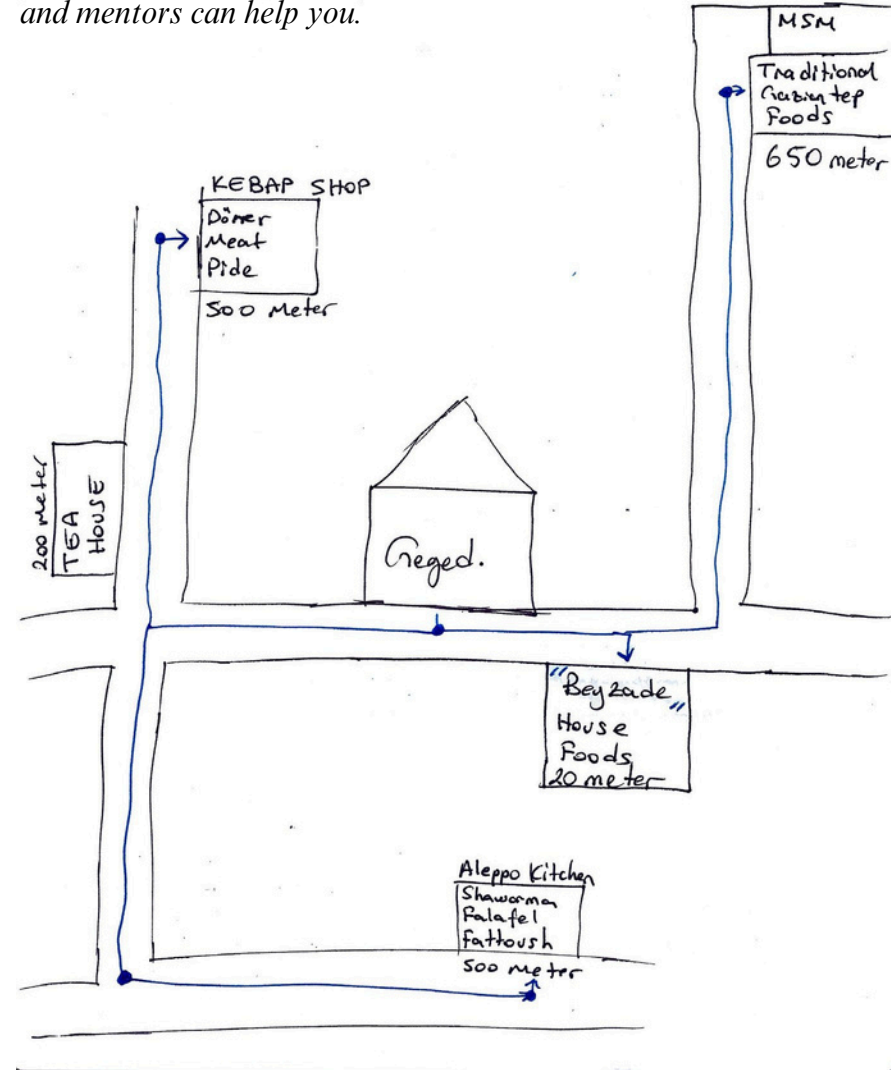 and mentors can help you.
MSM
Traditional
Gaziantep
Foods
650 meter
KEBAP SHOP
Döner
Meat
Pide
500 Meter
200 meter
TEA
HOUSE
Geged.
"Beyzade"
House
Foods
20 meter
Aleppo Kitchen
Shaworma
Falafel
Fattoush
500 meter